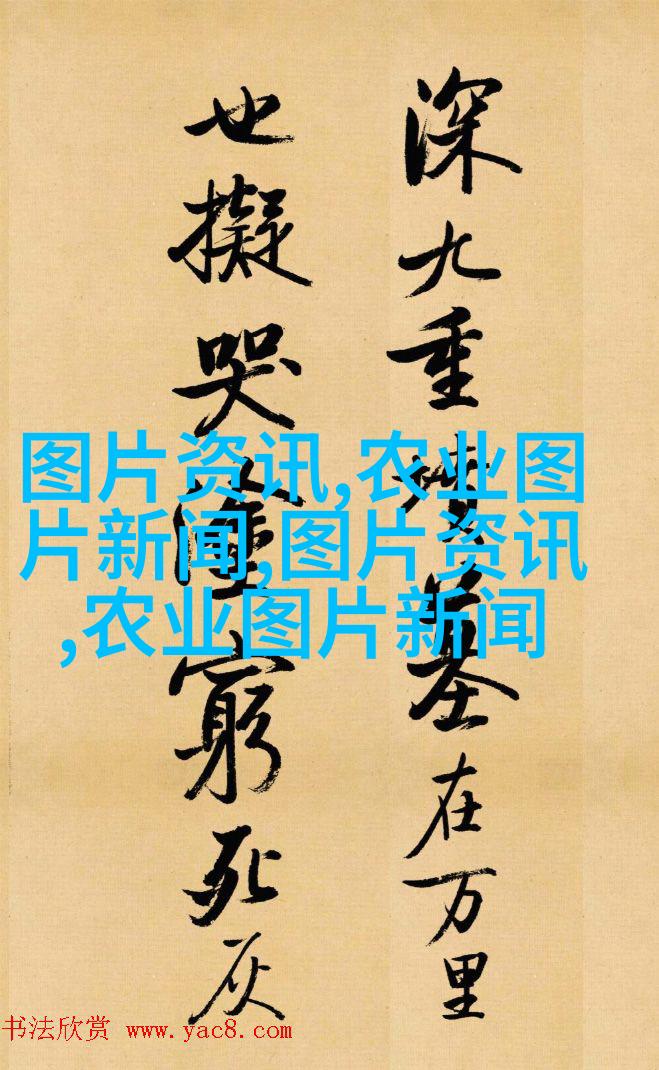 深九重墳墓在万里
也擬哭塗窮死灰
图片资讯,农业图
片新闻,图片资讯
,农业图片新闻
书法欣赏 www.yac8.com